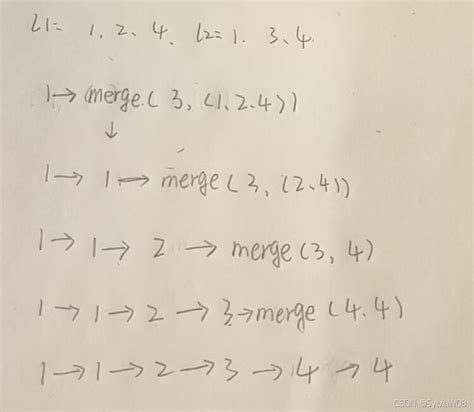 l1= 1、2、4、l2=1. 3、4
1→merge(3, (1.2.4))
↓
1→ 1→ merge(3, (2.4))
1→ 1→ 2 → merge(3, 4)
1→ 1→ 2 → 3→merge(4.4)
1→1→2→3→4→4